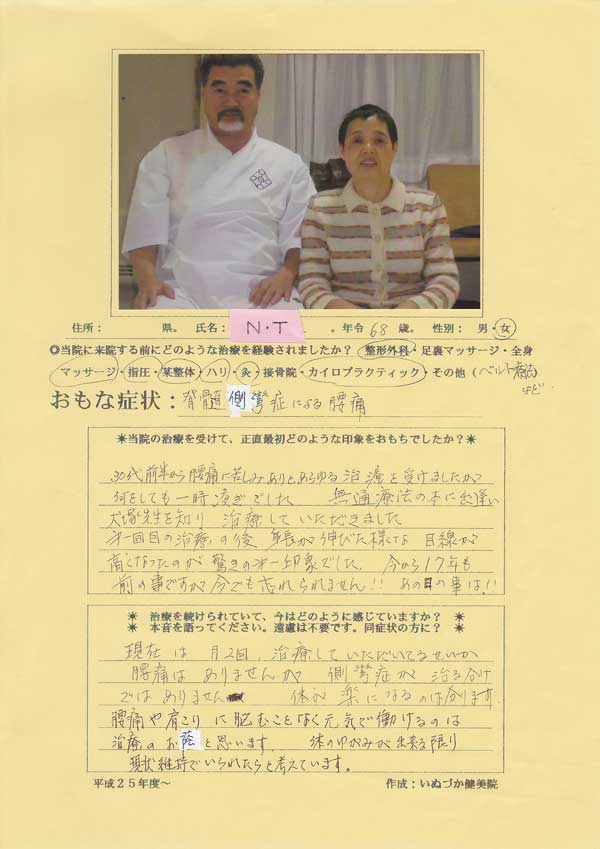 住所: 県。 氏名: N・T 。年令 68 歳。 性別: 男・女
◎当院に来院する前にどのような治療を経験されましたか? 整形外科・足裏マッサージ・全身
マッサージ・指圧・某整体・ハリ・灸・接骨院・カイロプラクティック・その他(ベルト療法
など
おもな症状: 脊髄側彎症による腰痛
✴当院の治療を受けて、正直最初どのような印象をおもちでしたか?✴
30代前半から腰痛に苦しみありとあらゆる治療を受けましたが
何をしても一時凌ぎでした 無痛療法の本に出逢い
犬塚先生を知り 治療していただきました
才一回目の治療の後 身長が伸びた様な 目線が
高くなったのが 驚きの才一印象でした。 今から17年も
前の事ですが今でも忘れられません!! あの日の事は!!
✴ 治療を続けられていて、今はどのように感じていますか? ✴
✴ 本音を語ってください。遠慮は不要です。同症状の方に? ✴
現在は 月2回、治療していただいてるせいか
腰痛はありませんが 側彎症が 治る分け
ではありません 体が 楽になるのは分ります
腰痛や肩こりに悩むことなく元気で働けるのは
治療のお蔭と思います。 体のゆがみが出来る限り
現状維持でいられたらと考えています。
平成25年度～ 作成:いぬづか健美院